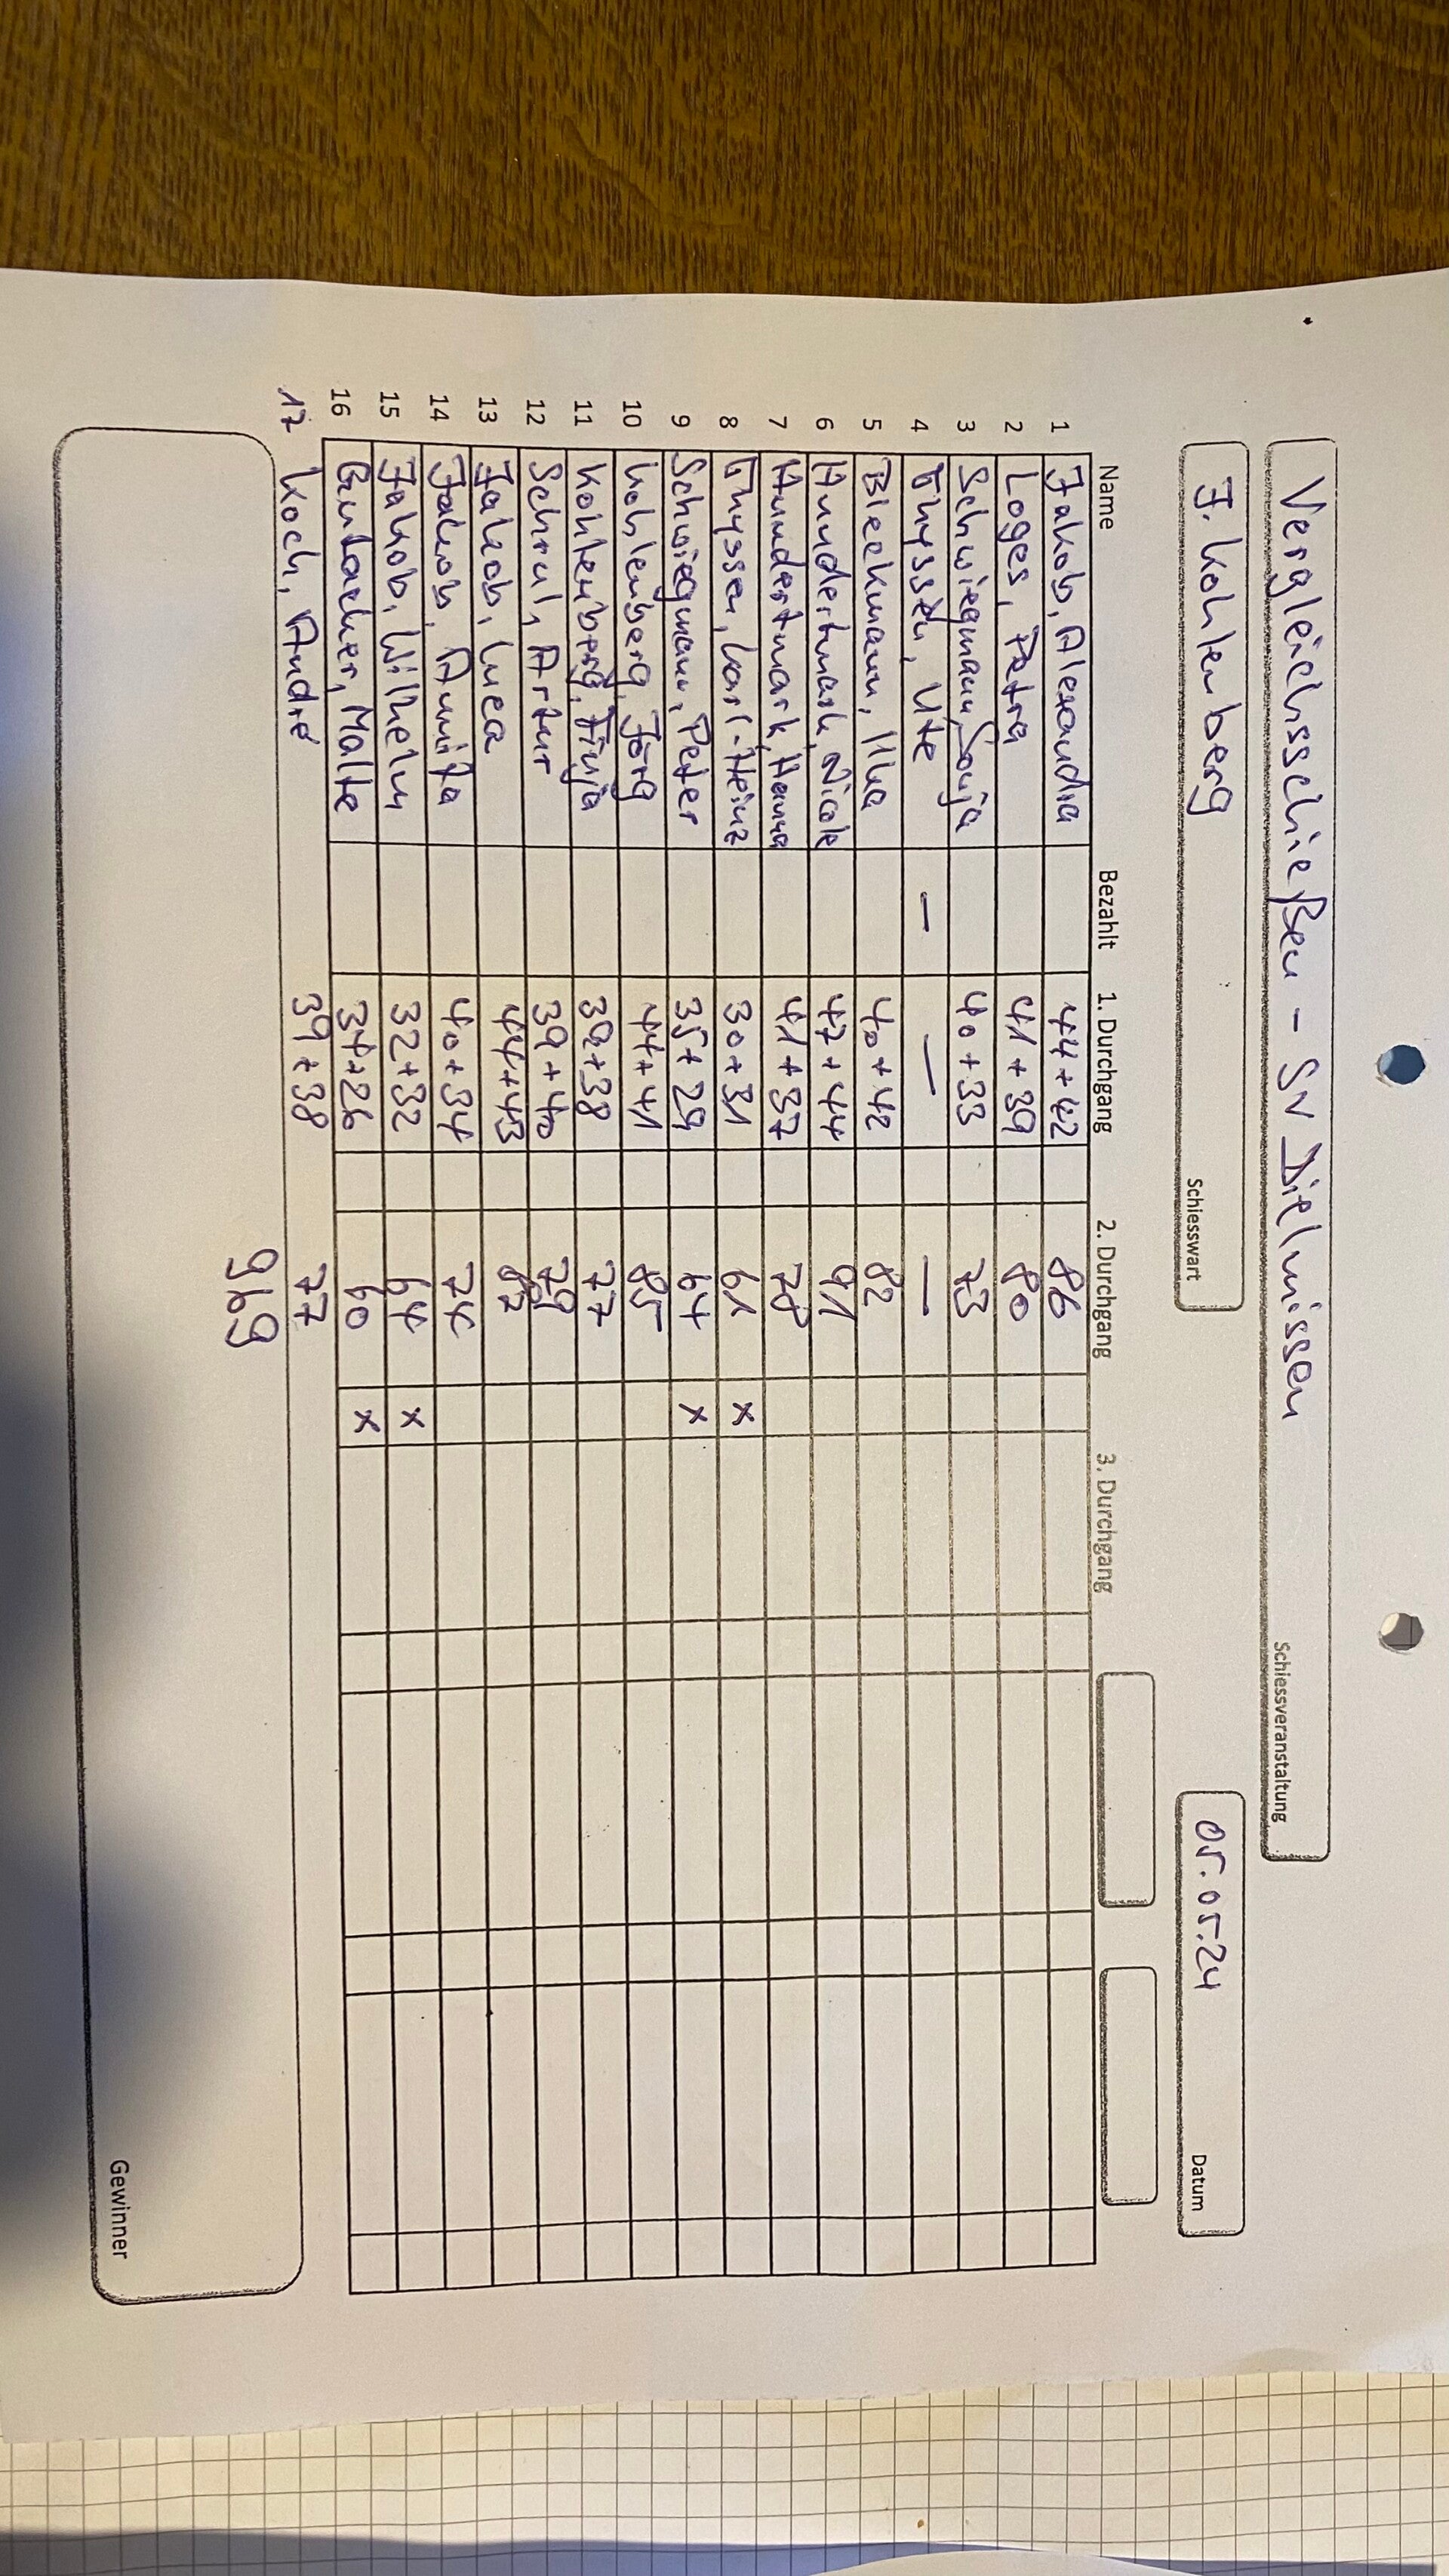 Vergleichsschießen - SV Dielmissen
Schiessveranstaltung
J. Kohlenberg
Schiesswart
05.05.24
Datum
Name Bezahlt 1. Durchgang 2. Durchgang 3. Durchgang
1 Jakob, Alexandra 44+42 86
2 Loges, Petra 41+39 80
3 Schwiegmann, Sonja 40+33 73
4 Thyssen, Ute – – –
5 Bleekmann, Ilka 40+42 82
6 Hundertmark, Nicole 47+44 91
7 Hundertmark, Hanna 41+37 78
8 Thyssen, Karl-Heinz 30+31 61 x
9 Schwiegmann, Peter 35+29 64 x
10 Kohlenberg, Jörg 44+41 85
11 Kohlenberg, Finja 39+38 77
12 Schrul, Artur 39+40 79
13 Jakob, Luca 44+43 87
14 Jakob, Annita 40+34 74
15 Jakob, Wilhelm 32+32 64 x
16 Gutacker, Malte 34+26 60 x
17 Koch, André 39+38 77
969
Gewinner